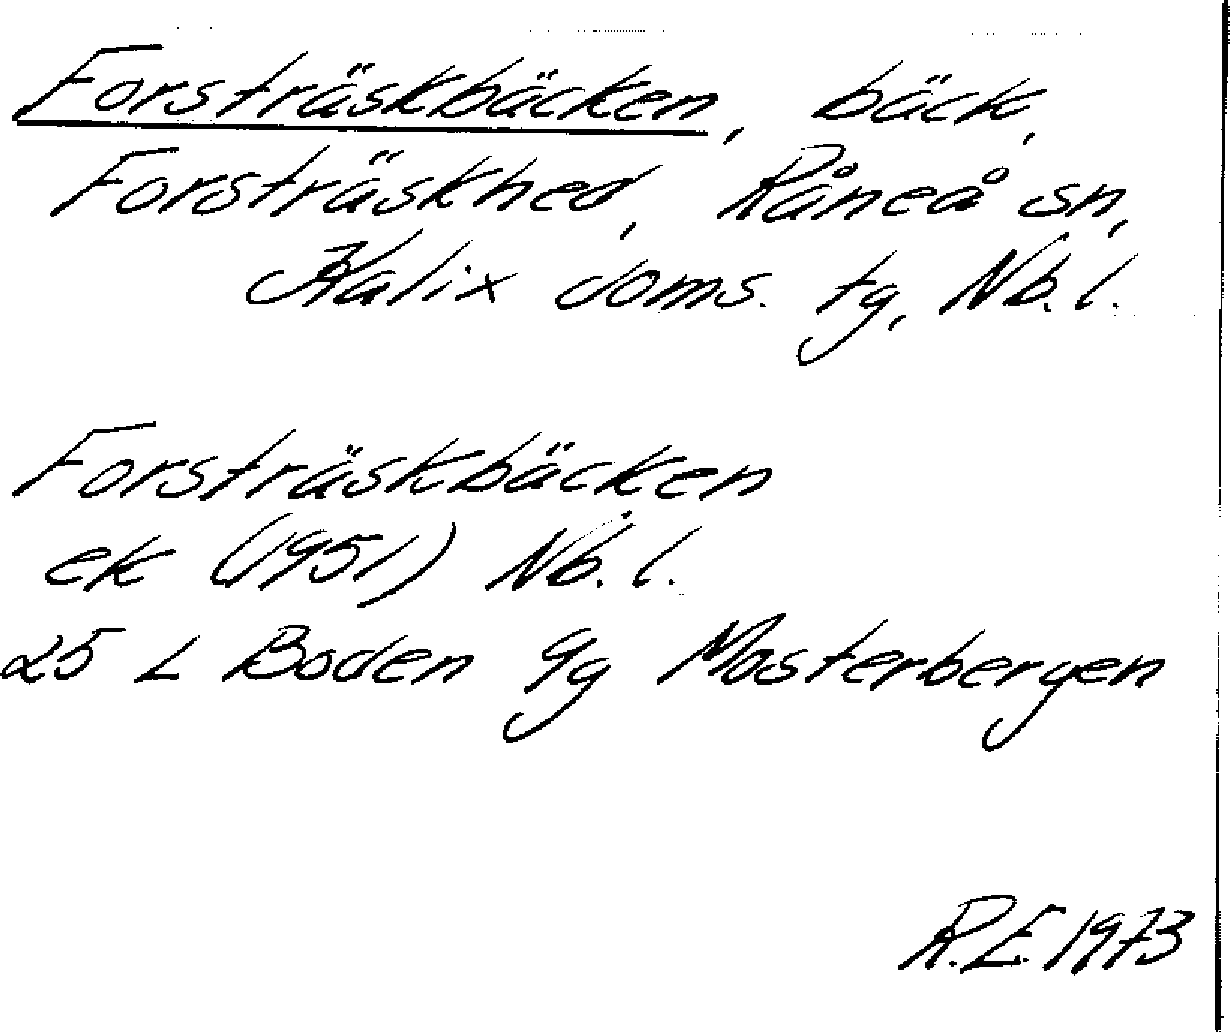 Forsträskbäcken, bäck,
Forsträskhed, Råneå sn,
Kalix doms. tg, Nb. l.
Forsträskbäcken
ek (1951) Nb. l.
25 L Boden 9g Mosterbergen
R.E. 1973